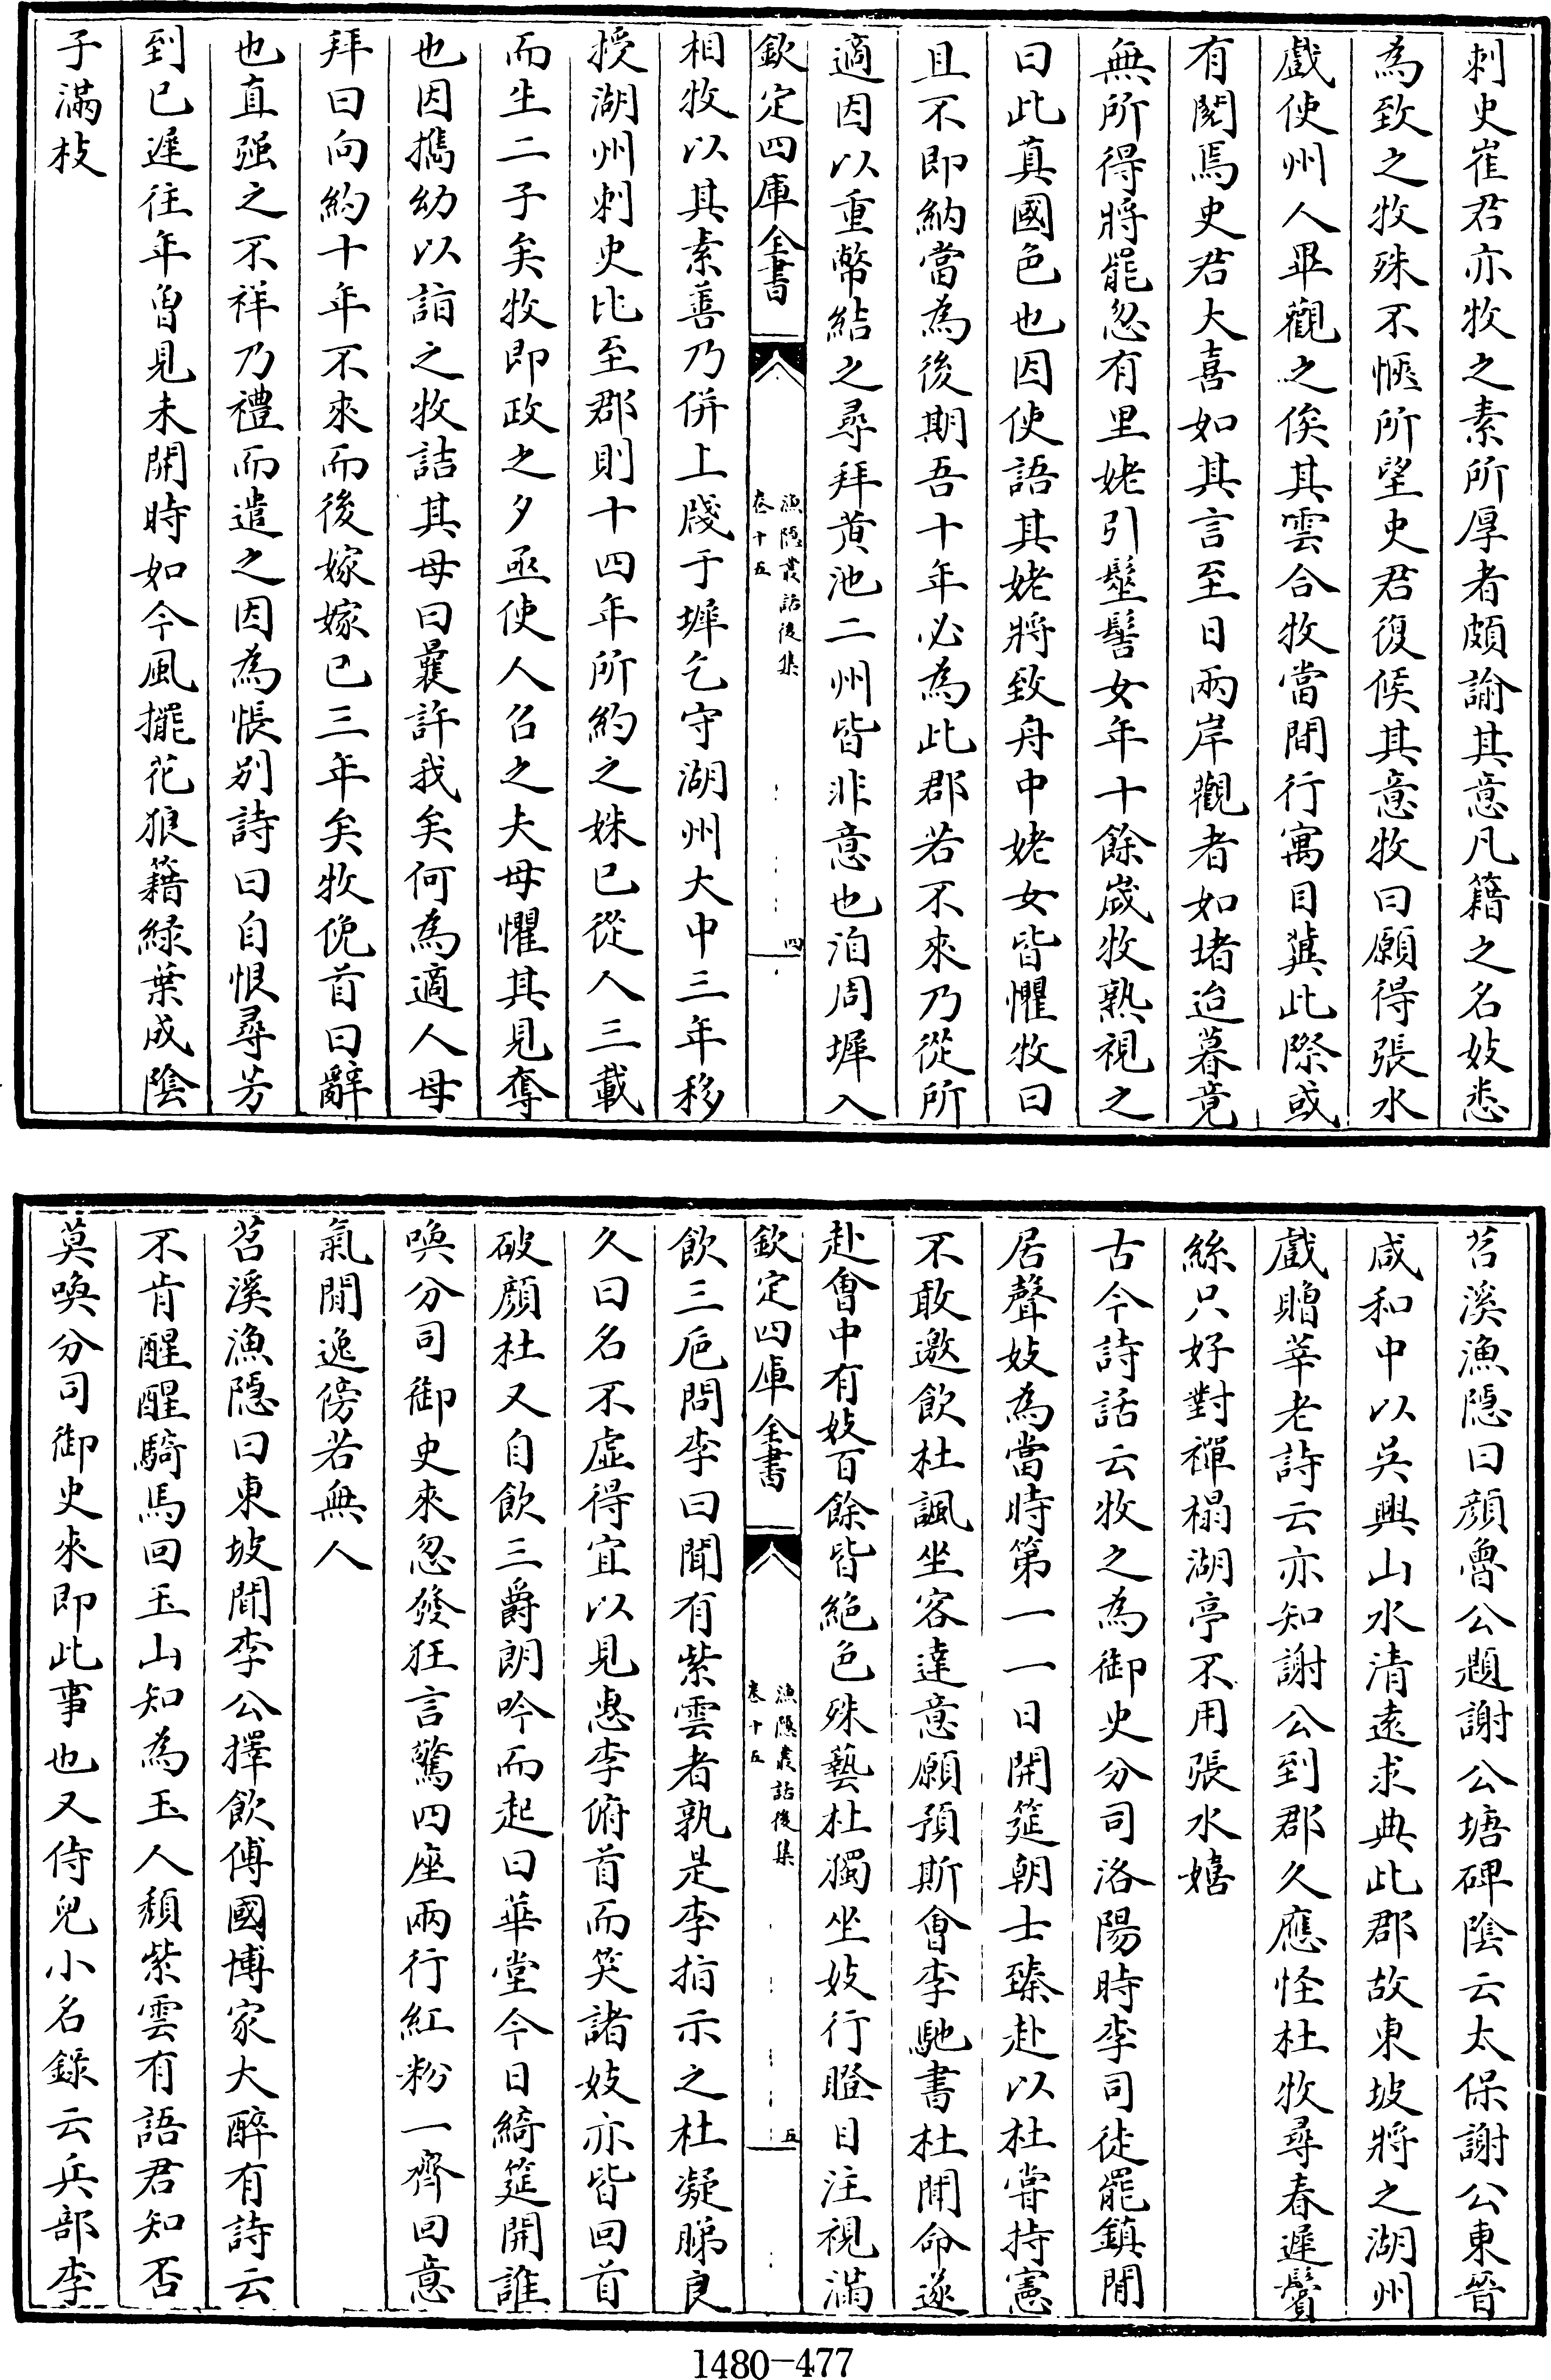 刺史崔君亦牧之素所厚者頗諭其意凡籍之名妓悉
為致之牧殊不愜所望史君復候其意牧曰願得張水
戲使州人畢觀之俟其雲合牧當間行寓目冀此際或
有閱焉史君大喜如其言至日兩岸觀者如堵迨暮竟
無所得將罷忽有里姥引髽髻女年十餘歲牧熟視之
曰此真國色也因使語其姥將致舟中姥女皆懼牧曰
且不即納當為後期吾十年必為此郡若不來乃從所
適因以重幣結之尋拜黄池二州皆非意也洎周墀入
欽定四庫全書
漁隱叢話後集
卷十五
四
相牧以其素善乃併上牋于墀乞守湖州大中三年移
授湖州刺史比至郡則十四年所約之姝已從人三載
而生二子矣牧即政之夕亟使人召之夫母懼其見奪
也因攜幼以詣之牧詰其母曰曩許我矣何為適人母
拜曰向約十年不來而後嫁嫁已三年矣牧俛首曰辭
也直强之不祥乃禮而遣之因為悵别詩曰自恨尋芳
到已遲往年曾見未開時如今風擺花狼籍緑葉成陰
子滿枝
苕溪漁隱曰顔魯公題謝公塘碑陰云太保謝公東晉
咸和中以吳興山水清遠求典此郡故東坡將之湖州
戲贈莘老詩云亦知謝公到郡久應怪杜牧尋春遲鬢
絲只好對禪榻湖亭不用張水嬉
古今詩話云牧之為御史分司洛陽時李司徒罷鎮閒
居聲妓為當時第一一日開筵朝士臻赴以杜嘗持憲
不敢邀飲杜諷坐客達意願預斯會李馳書杜聞命遂
赴會中有妓百餘皆絶色殊藝杜獨坐妓行瞪目注視滿
欽定四庫全書
漁隱叢話後集
卷十五
五
飲三巵問李曰聞有紫雲者孰是李指示之杜凝睇良
久曰名不虛得宜以見惠李俯首而笑諸妓亦皆回首
破顔杜又自飲三爵朗吟而起曰華堂今日綺筵開誰
喚分司御史來忽發狂言驚四座兩行紅粉一齊回意
氣閒逸傍若無人
苕溪漁隱曰東坡聞李公擇飲傅國博家大醉有詩云
不肯醒醒騎馬回玉山知為玉人頹紫雲有語君知否
莫喚分司御史來即此事也又侍兒小名錄云兵部李
1480-477